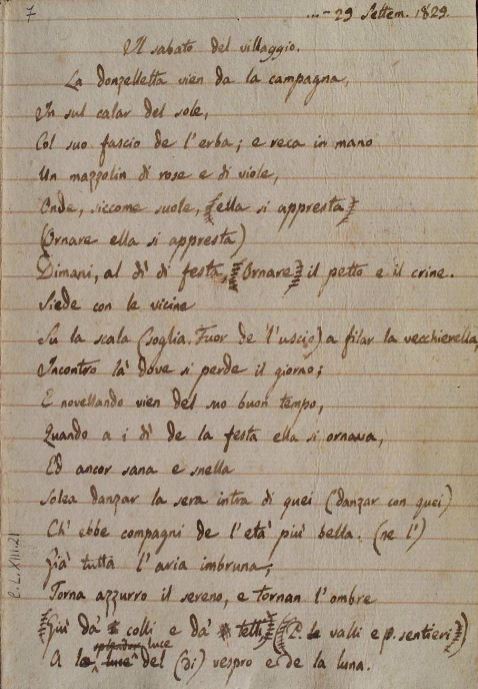 7
...- 29 Settem. 1829.
Il sabato del villaggio.
La donzelletta vien da la campagna,
In sul calar del sole,
Col suo fascio de l'erba; e reca in mano
Un mazzolin di rose e di viole,
Onde, siccome suole, (ella si appresta)
(Ornare ella si appresta)
Dimani, al dì di festa, (Ornare) il petto e il crine.
Siede con le vicine
Su la scala (soglia. Fuor de l'uscio) a filar la vecchierella,
Incontro là dove si perde il giorno;
E novellando vien del suo buon tempo,
Quando a i dì de la festa ella si ornava,
Ed ancor sana e snella
Solea danzar la sera intra di quei (danzar con quei)
Ch' ebbe compagni de l'età più bella. (ne l')
Già tutta l'aria imbruna,
Torna azzurro il sereno, e tornan l'ombre
Giù da' colli e da' tetti (P. le valli e p. sentieri)
splendor luce
A la luce del (di) vespro e de la luna.
C.L.XIII.21